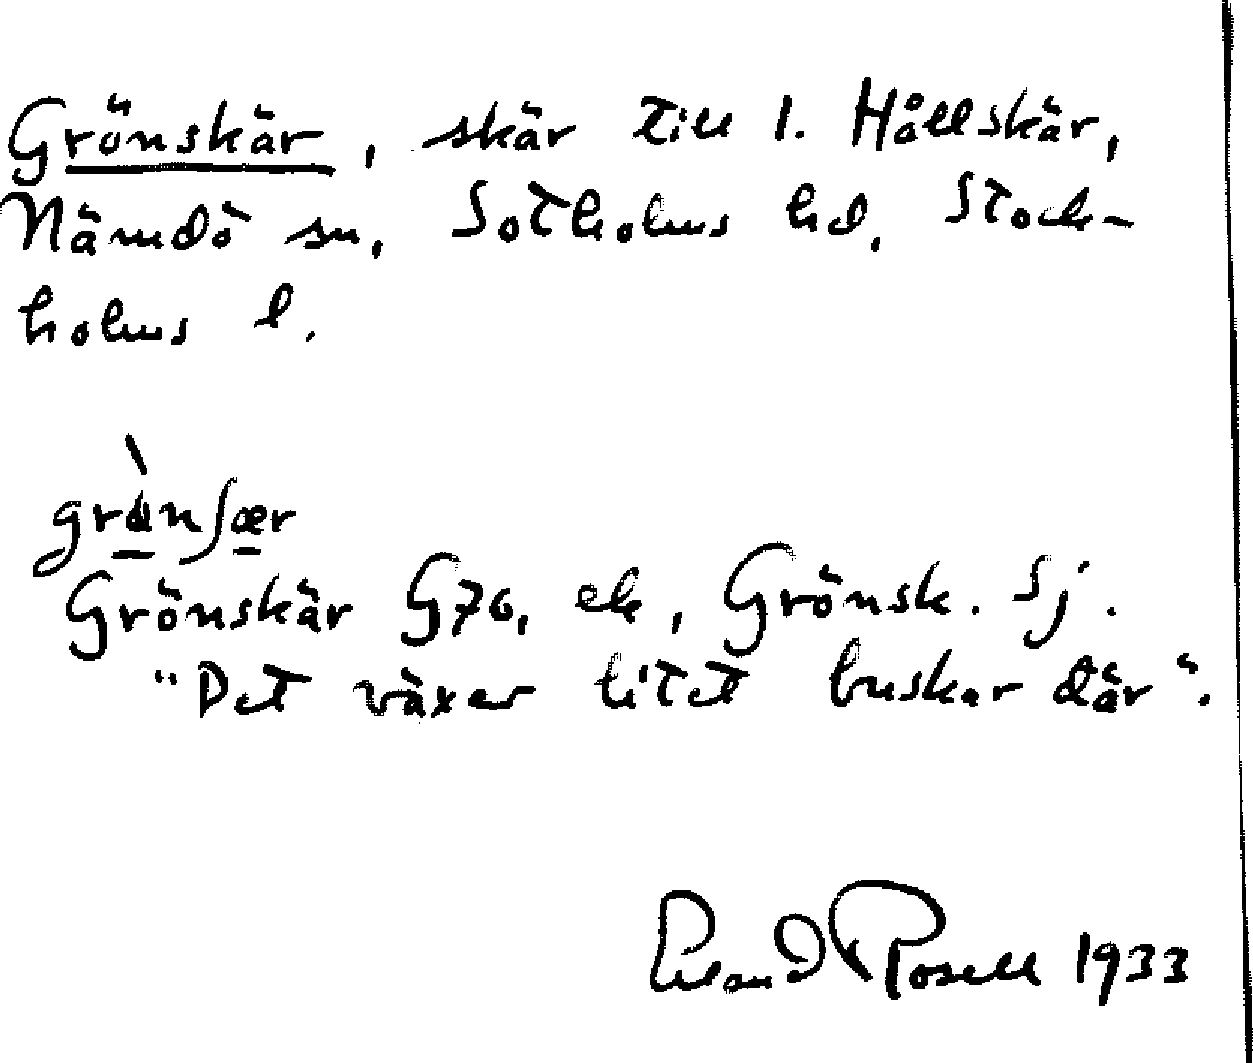 Grönskär, skär till l. Hållskär,
Nämdö sn, Sotholms hd, Stock-
holms l.
grö̀nʃær
Grönskär G70, ek, Grönsk. Sj.
"Det växer litet buskar där".
Erland Rosell 1933